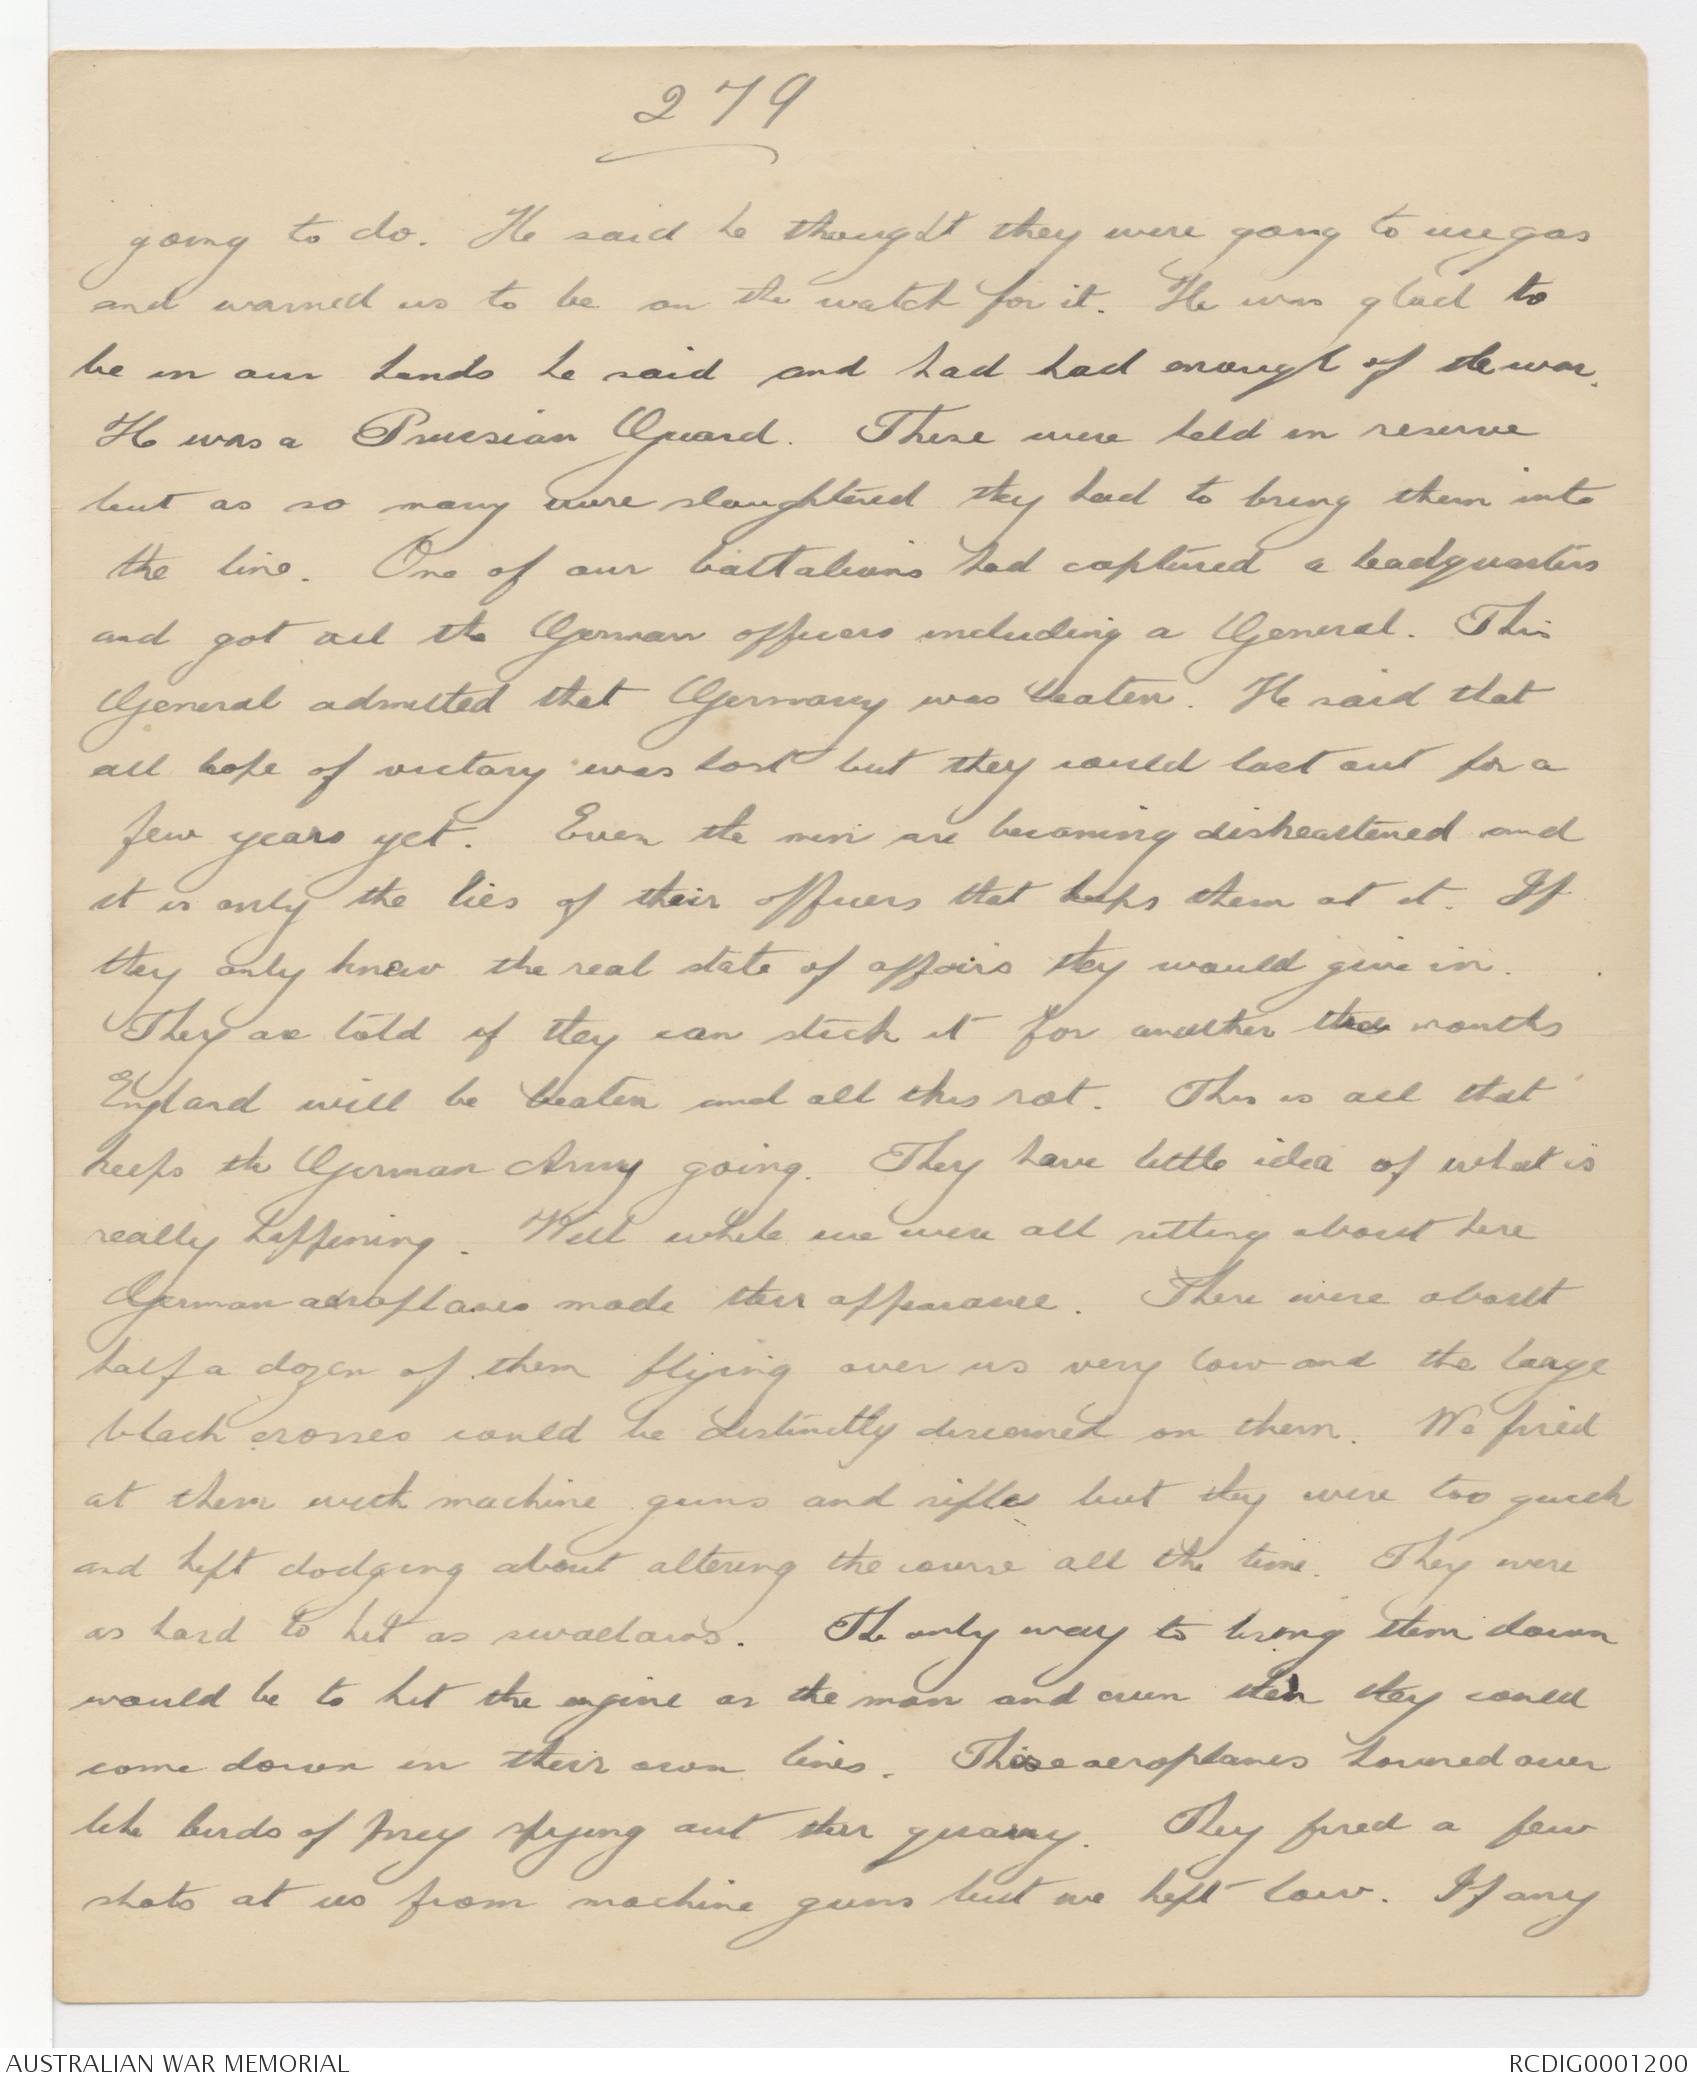 279
going to do. He said he thought they were going to use gas
and warned us to be on the watch for it. He was glad to
be in our hands he said and had had enough of the war.
He was a Prussian Guard. These were held in reserve
but as so many were slaughtered they had to bring them into
the line. One of our battalions had captured a headquarters
and got all the German officers including a General. This
General admitted that Germany was beaten. He said that
all hope of victory was lost but they could last out for a
few years yet. Even the men are becoming disheartened and
it is only the lies of their officers that keeps them at it. If
they only knew the real state of affairs they would give in.
They are told if they can stick it for another three months
England will be beaten and all this rot. This is all that
keeps the German Army going. They have little idea of what is
really happening. Well while we were all sitting about here
German aeroplanes made their appearance. There were about
half a dozen of them flying over us very low and the large
black crosses could be distinctly discerned on them. We fired
at them with machine guns and rifles but they were too quick
and kept dodging about altering the course all the time. They were
as hard to hit as swallows. The only way to bring them down
would be to hit the engine or the man and even then they could
come down in their own lines. These aeroplanes hovered over
like birds of prey spying out their quarry. They fired a few
shots at us from machine guns but we kept low. If any
AUSTRALIAN WAR MEMORIAL
RCDIG0001200